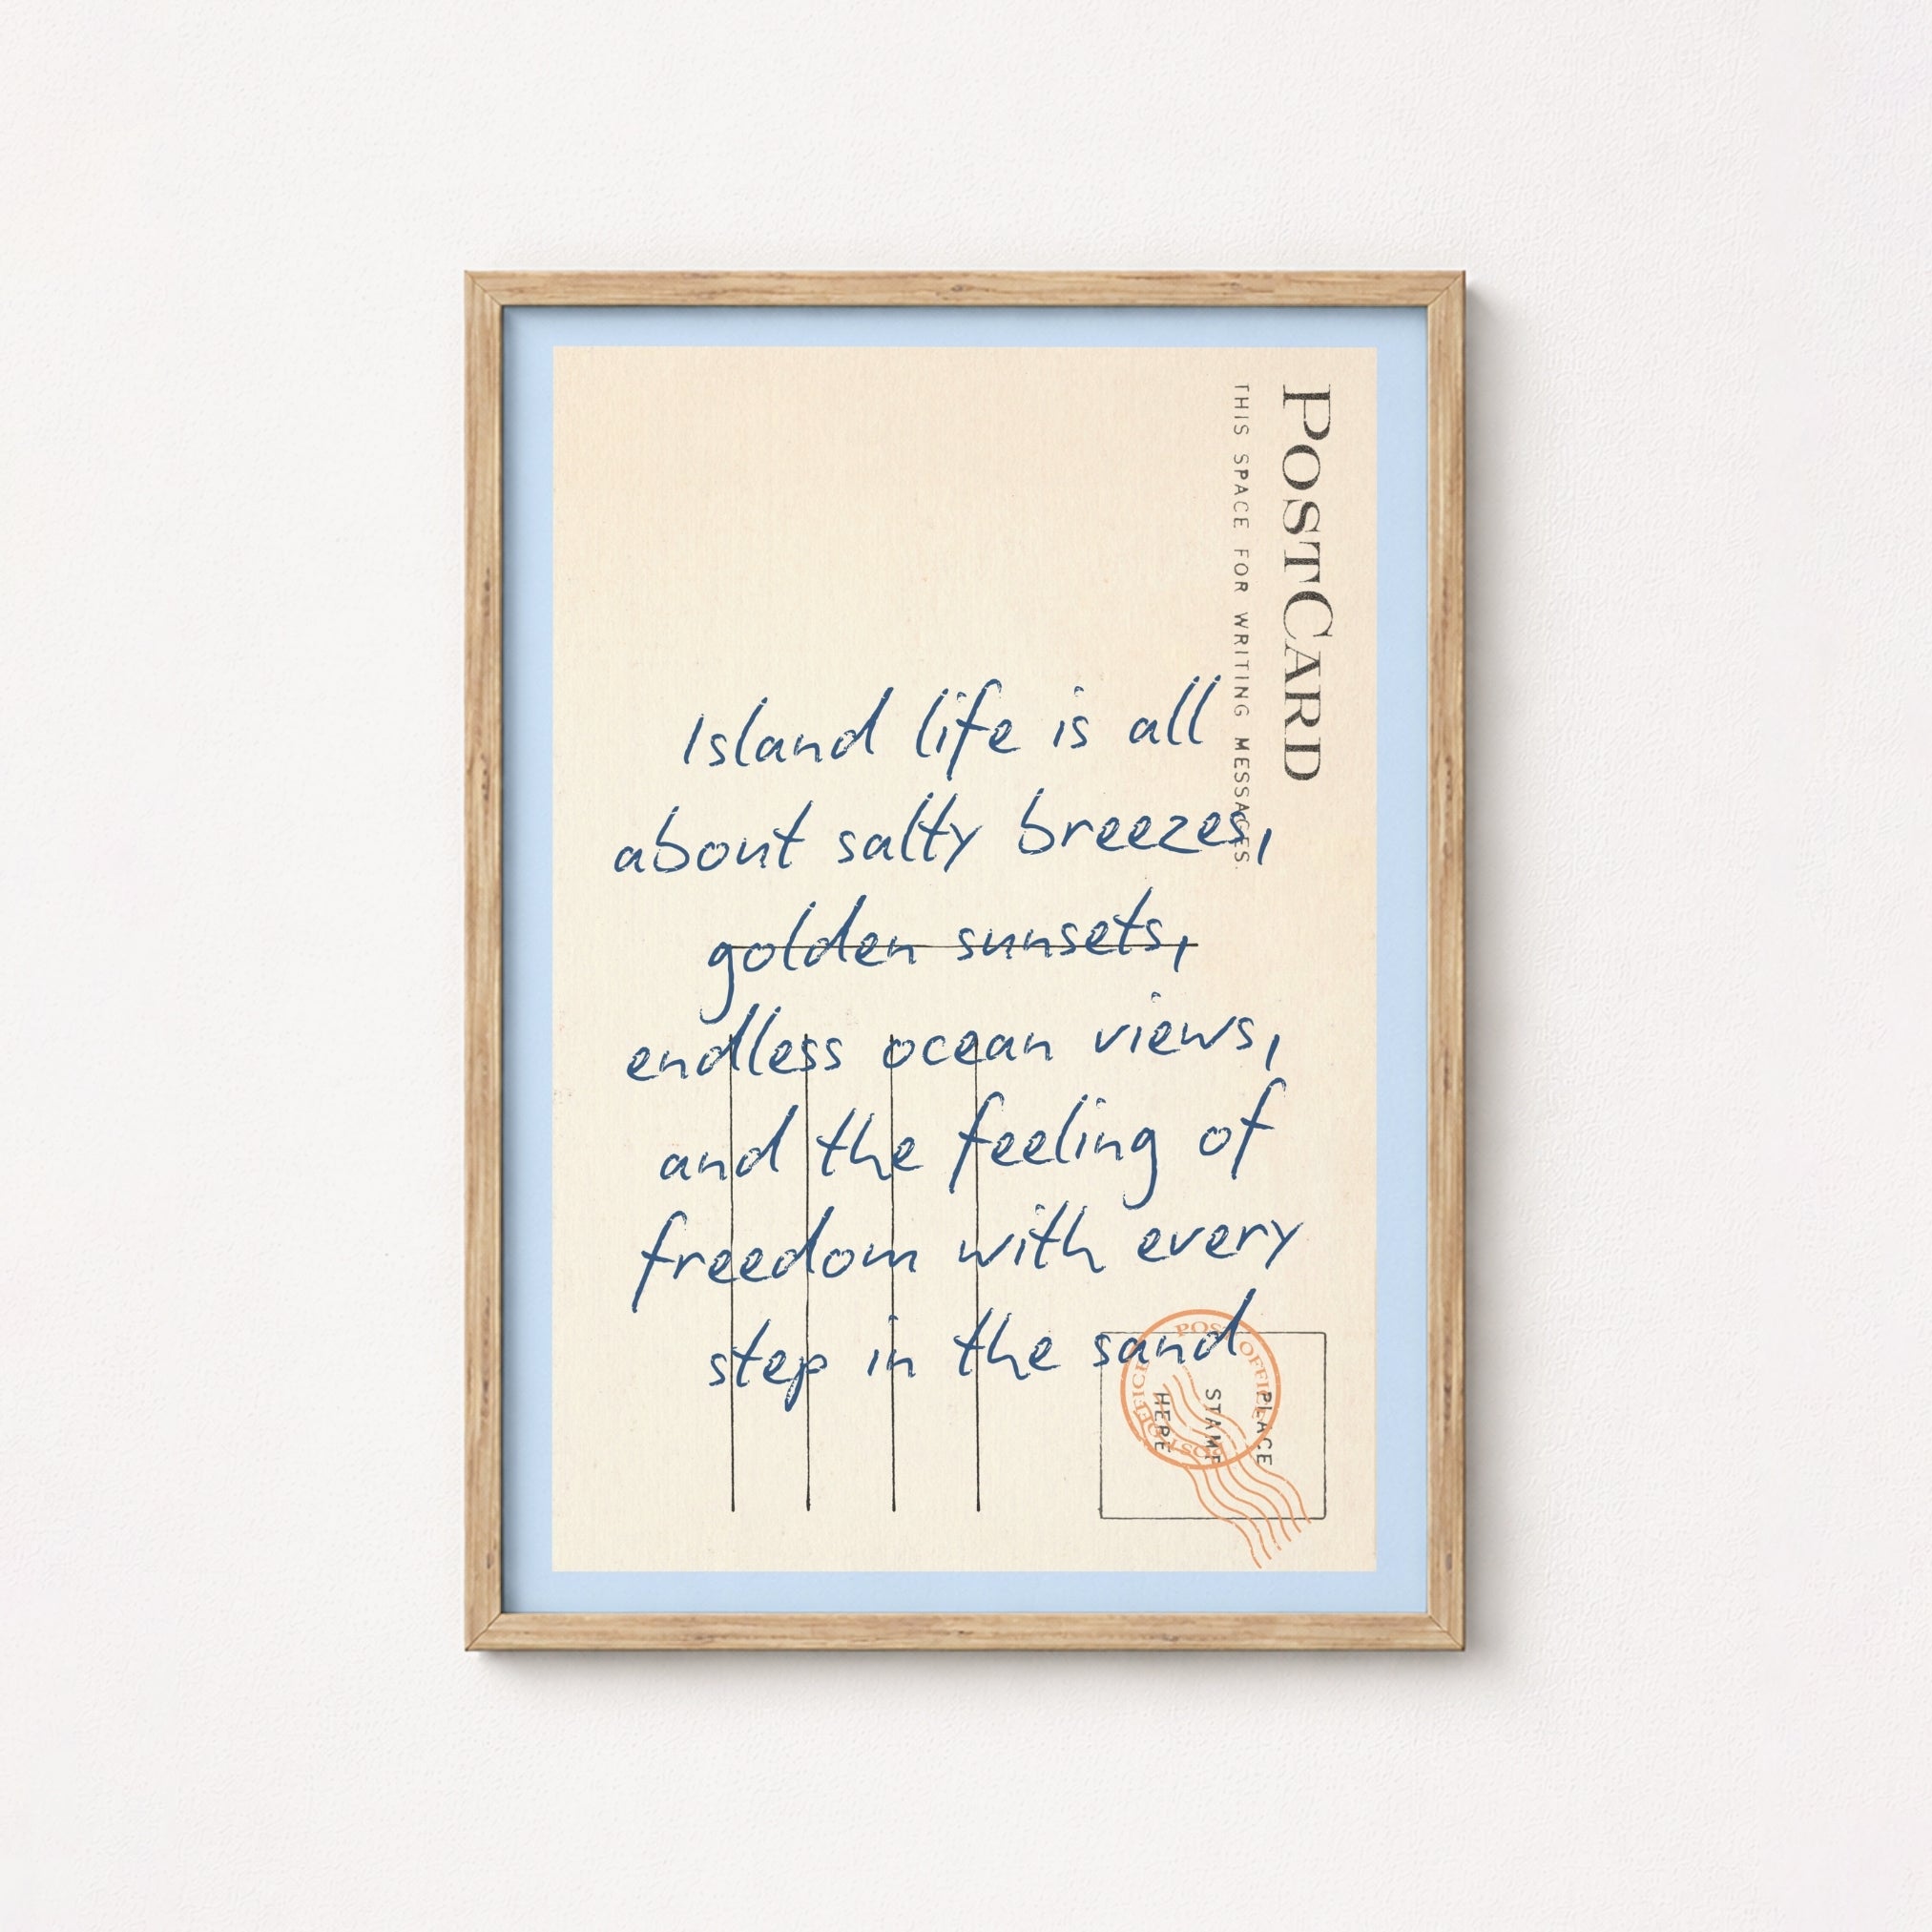 PostCard
THIS SPACE FOR WRITING MESSAGES.
Island life is all
about salty breezes,
golden sunsets,
endless ocean views,
and the feeling of
freedom with every
step in the sand
PLACE
STAMP
HERE
POST OFFICE
POST OFFICE